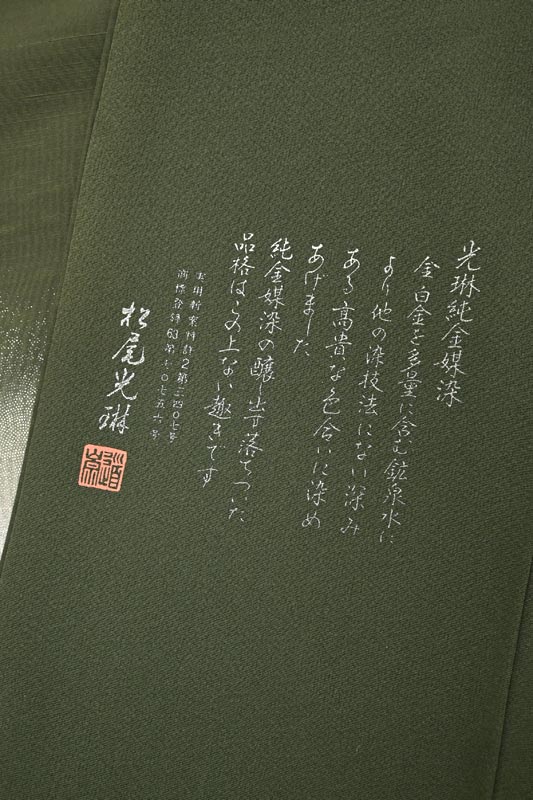 光琳純金媒染
金 白金を多量に含む鉱泉水に
より他の染技法にない深み
ある高貴な色合いに染め
あげました
純金媒染の醸し出す落ちついた
品格はこの上ない趣きです
実用新案特許2第二四〇七号
商標登録63第十〇七五六号
松尾光琳